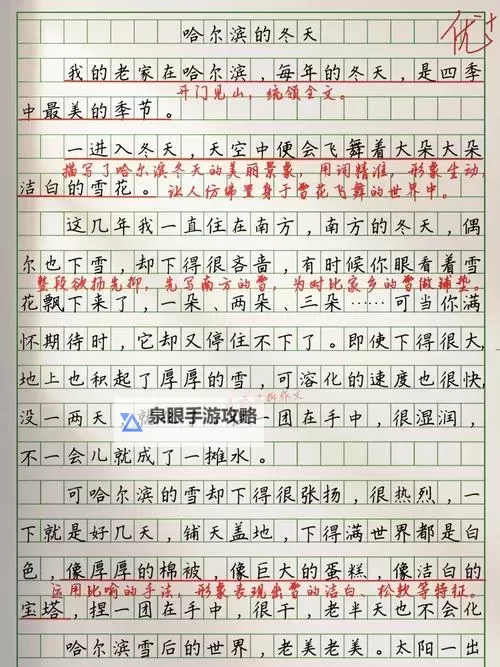 哈尔滨的冬天
优+
我的老家在哈尔滨，每年的冬天，是四季
开门见山，统领全文。
中最美的季节。
一进入冬天，天空中便会飞舞着大朵大朵
描写了哈尔滨冬天的美丽景象，用词精准，形象生动，
洁白的雪花。
让人仿佛置身于雪花飞舞的世界中。
这几年我一直住在南方，南方的冬天，偶
尔也下雪，却下得很吝啬，有时候你眼看着雪
整段欲扬先抑，先写南方的雪，为对比家乡的雪做铺垫。
花飘下来了，一朵、两朵、三朵……可当你满
怀期待时，它却又停住不下了。即使下得很大，
地上也积起了厚厚的雪，可溶化的速度也很快，
没一两天 就 一团在手中，很湿润，
泉眼手游攻略
不一会儿就成了一摊水。
可哈尔滨的雪却下得很张扬，很热烈，一
下就是好几天，铺天盖地，下得满世界都是白
色，像厚厚的棉被，像巨大的蛋糕，像洁白的
运用比喻的手法，形象表现出雪的洁白、松软等特征。
宝塔，捏一团在手中，很干，老半天也不会化
哈尔滨雪后的世界，老美老美。太阳一出